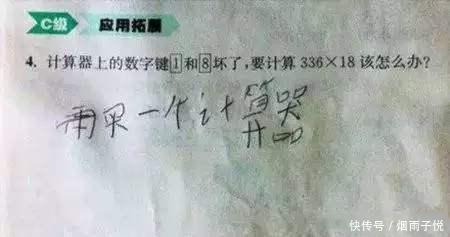 C级 应用拓展
4. 计算器上的数字键1和8坏了,要计算336×18该怎么办?
再买一个计算器
快传号/烟雨子悦